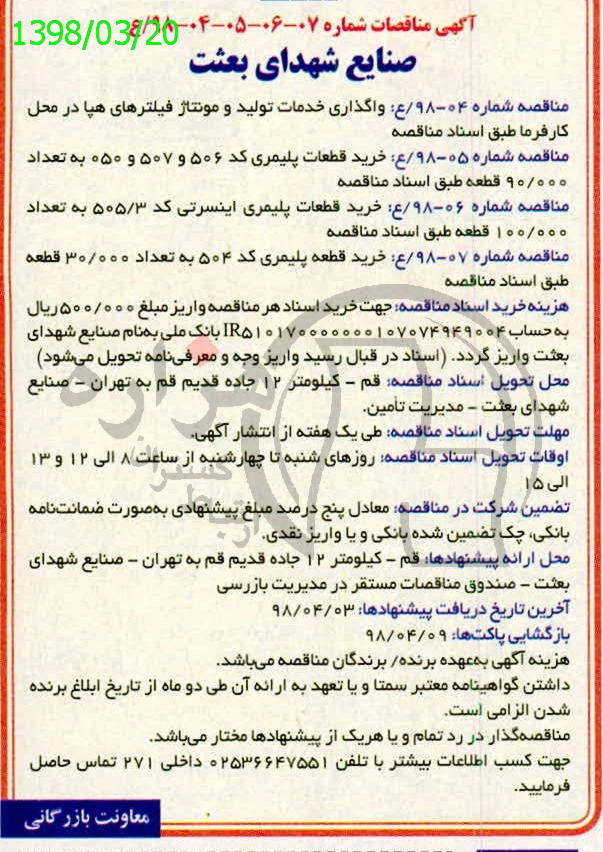 آگهی مناقصات شماره ۰۷-۰۶-۰۵-۰۴-۹۸/ع
1398/03/20
صنایع شهدای بعثت
مناقصه شماره ۰۴-۹۸/ع: واگذاری خدمات تولید و مونتاژ فیلترهای هپا در محل
کارفرما طبق اسناد مناقصه
مناقصه شماره ۰۵-۹۸/ع: خرید قطعات پلیمری کد ۵۰۶ و ۵۰۷ و ۰۵۰ به تعداد
۹۰/۰۰۰ قطعه طبق اسناد مناقصه
مناقصه شماره ۰۶-۹۸/ع: خرید قطعات پلیمری اینسرتی کد ۵۰۵/۳ به تعداد
۱۰۰/۰۰۰ قطعه طبق اسناد مناقصه
مناقصه شماره ۰۷-۹۸/ع: خرید قطعه پلیمری کد ۵۰۴ به تعداد ۳۰/۰۰۰ قطعه
طبق اسناد مناقصه
هزینه خرید اسناد مناقصه: جهت خرید اسناد هر مناقصه واریز مبلغ ۵۰۰/۰۰۰ ریال
به حساب IR۵۱۰۱۷۰۰۰۰۰۰۰۱۰۷۰۷۴۹۴۹۰۰۴ بانک ملی به‌نام صنایع شهدای
بعثت واریز گردد. (اسناد در قبال رسید واریز وجه و معرفی‌نامه تحویل می‌شود)
محل تحویل اسناد مناقصه: قم - کیلومتر ۱۲ جاده قدیم قم به تهران - صنایع
شهدای بعثت - مدیریت تأمین.
مهلت تحویل اسناد مناقصه: طی یک هفته از انتشار آگهی.
اوقات تحویل اسناد مناقصه: روزهای شنبه تا چهارشنبه از ساعت ۸ الی ۱۲ و ۱۳
الی ۱۵
تضمین شرکت در مناقصه: معادل پنج درصد مبلغ پیشنهادی به‌صورت ضمانت‌نامه
بانکی، چک تضمین شده بانکی و یا واریز نقدی.
محل ارائه پیشنهادها: قم - کیلومتر ۱۲ جاده قدیم قم به تهران - صنایع شهدای
بعثت - صندوق مناقصات مستقر در مدیریت بازرسی
آخرین تاریخ دریافت پیشنهادها: ۹۸/۰۴/۰۳
بازگشایی پاکت‌ها: ۹۸/۰۴/۰۹
هزینه آگهی به‌عهده برنده/ برندگان مناقصه می‌باشد.
داشتن گواهینامه معتبر سمتا و یا تعهد به ارائه آن طی دو ماه از تاریخ ابلاغ برنده
شدن الزامی است.
مناقصه‌گذار در رد تمام و یا هریک از پیشنهادها مختار می‌باشد.
جهت کسب اطلاعات بیشتر با تلفن ۰۲۵۳۶۶۴۷۵۵۱ داخلی ۲۷۱ تماس حاصل
فرمایید.
معاونت بازرگانی